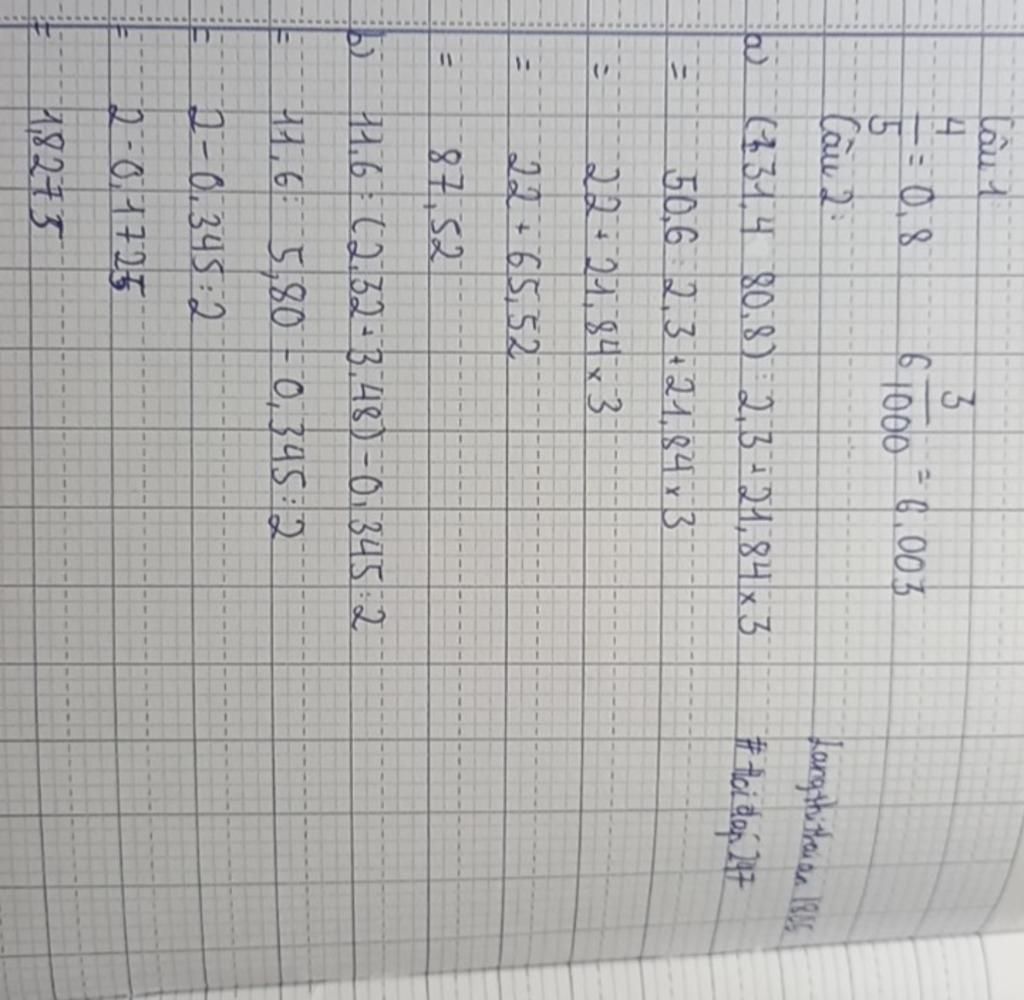 Câu 1
4/5 = 0,8 6 3/1000 = 6.003
Câu 2:
a) (131,4 80,8) : 2,3 + 21,84 x 3
= 50,6 : 2,3 + 21,84 x 3
= 22 + 21,84 x 3
= 22 + 65,52
= 87,52
b) 11,6 : (2,32 + 3,48) - 0,345 : 2
= 11,6 : 5,80 - 0,345 : 2
= 2 - 0,345 : 2
= 2 - 0,1725
= 1,8275
#hoidap247